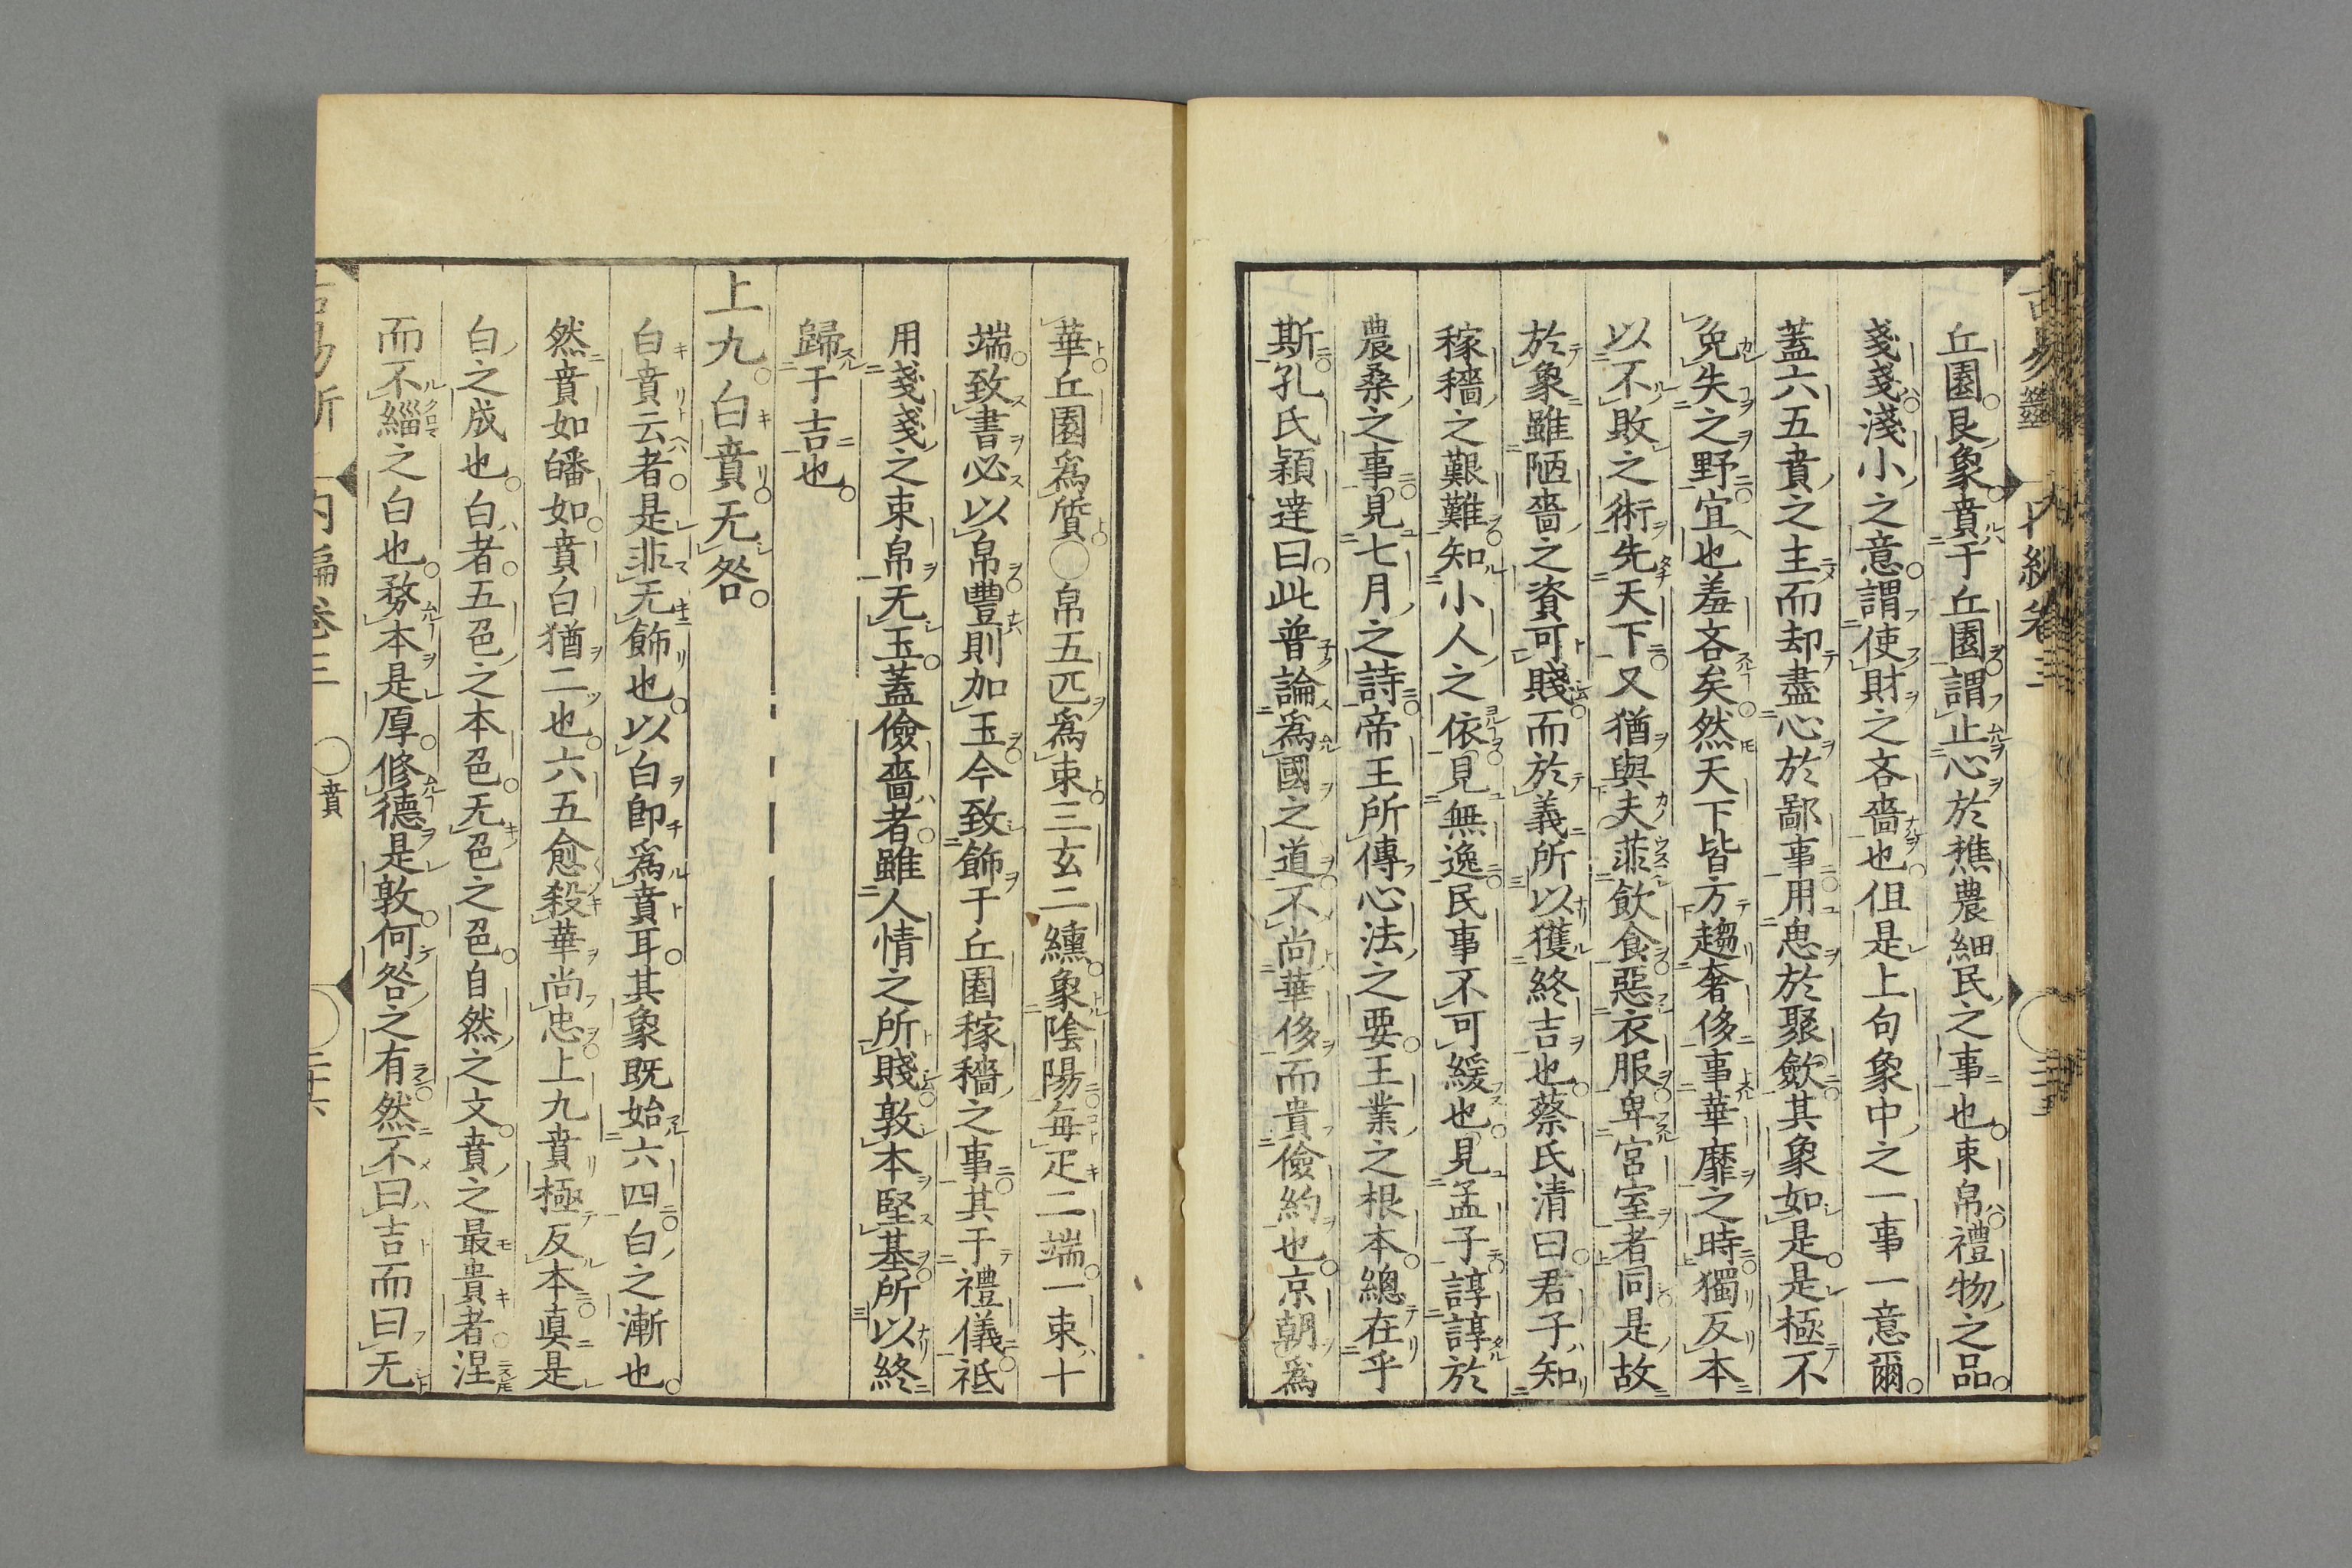 丘園艮象賁于丘園謂止心於樵農細民之事也束帛禮物之品
戔戔淺小之意謂使財之吝嗇也但是上句象中之一事一意爾
蓋六五賁之主而却盡心於鄙事用思於聚歛其象如是是極不
免失之野宜也羞吝矣然天下皆方趨奢侈事華靡之時獨反本
以不敗之術先天下又猶與夫菲飲食惡衣服卑宮室者同是故
於象雖陋嗇之資可賤而於義所以獲終吉也蔡氏清曰君子知
稼穡之艱難知小人之依見無逸民事不可緩也見孟子諄諄於
農桑之事見七月之詩帝王所傳心法之要王業之根本總在乎
斯孔氏穎達曰此普論爲國之道不尚華侈而貴儉約也京朝爲
華丘園爲質○帛五匹爲束三玄二纁象陰陽每疋二端一束十
端致書必以帛豐則加玉今致飾于丘園稼穡之事其于禮儀祗
用戔戔之束帛无玉蓋儉嗇者雖人情之所賤敦本堅基所以終
歸于吉也
上九白賁无咎
白賁云者是非无飾也以白卽爲賁耳其象既始六四白之漸也
然賁如皤如賁白猶二也六五愈殺華尚忠上九賁極反本眞是
白之成也白者五色之本色无色之色自然之文賁之最貴者涅
而不緇之白也務本是厚修德是敦何咎之有然不曰吉而曰无
內編卷三 ○賁